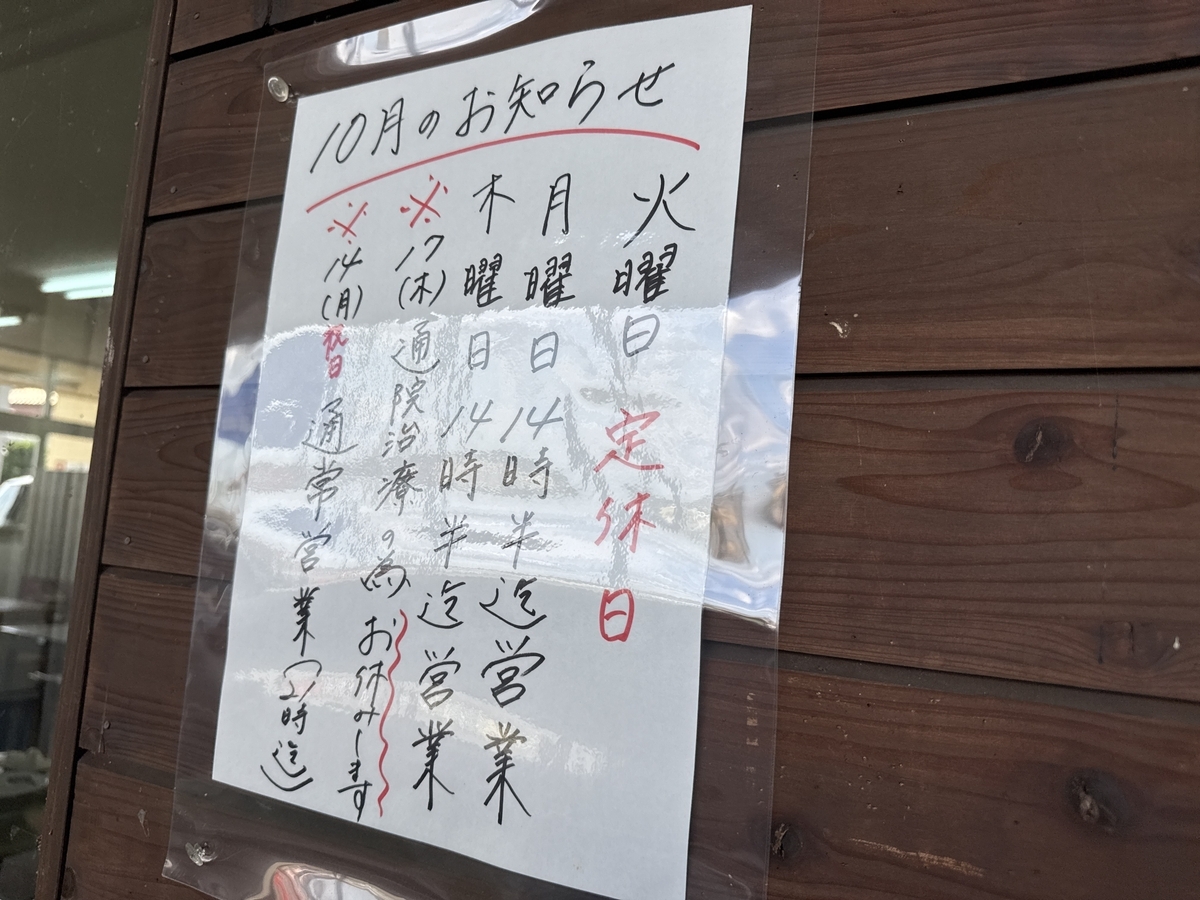 10月のお知らせ
火曜日 定休日
月曜日 14時半迄営業
木曜日 14時半迄営業
※17(木)通院治療の為お休みします
※14(月)祝日 通常営業(21時迄)